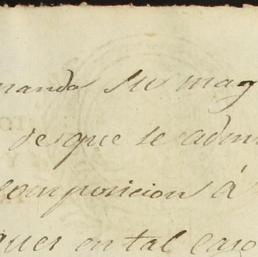 manda su mag
desque se admi
composicion á
ques en tal caso